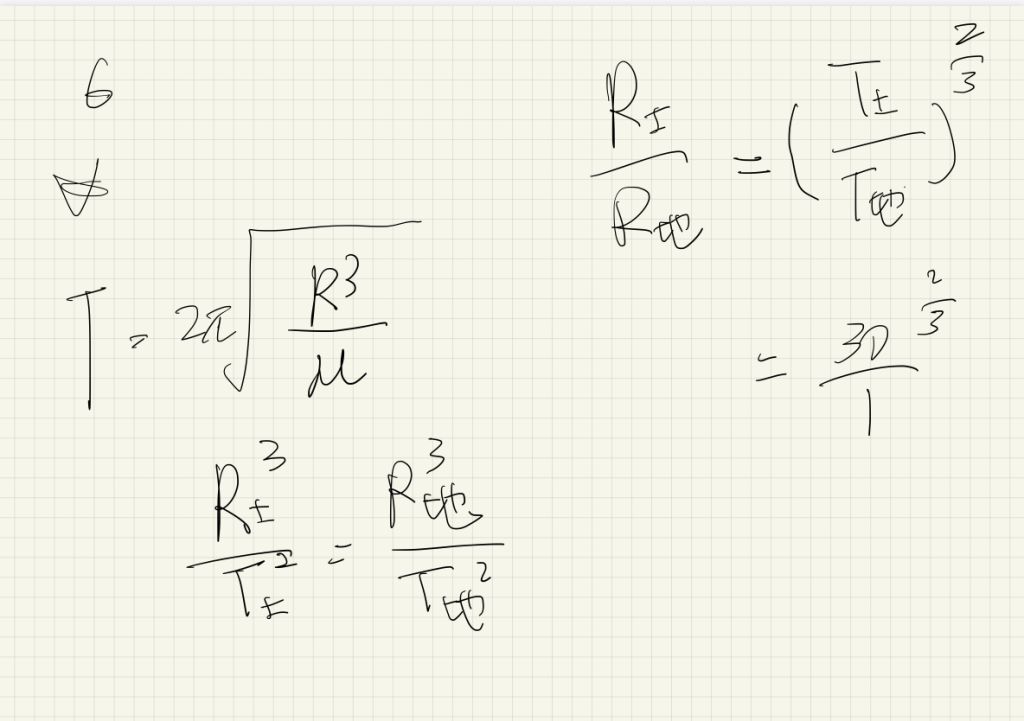 6
∀
T = 2π√(R³/μ)
R土³/T土² = R地³/T地²
R土/R地 = (T土/T地)^(2/3)
= 30/1^(2/3)